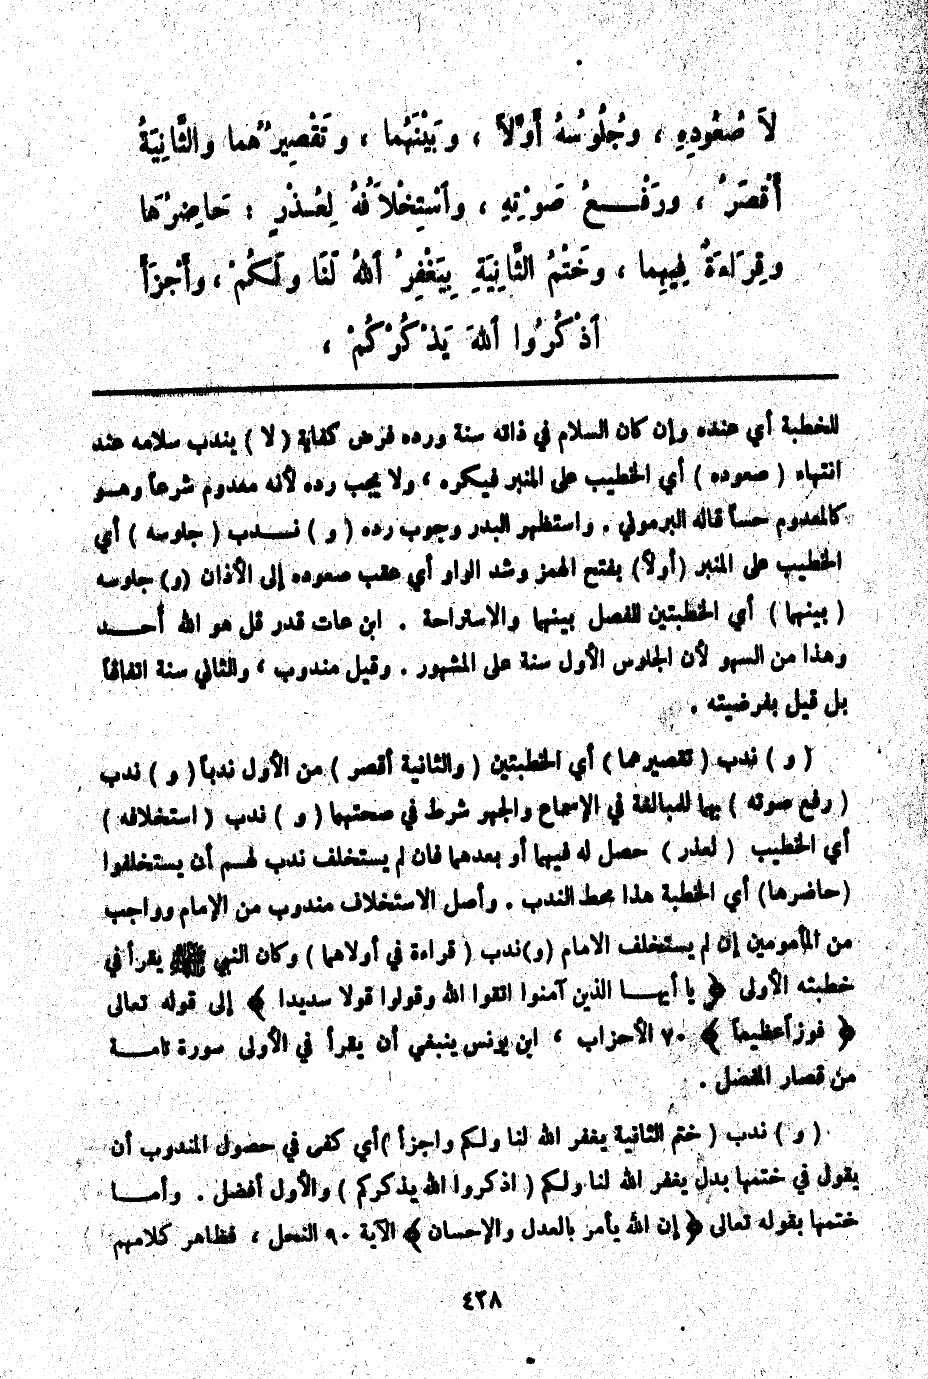 لاَ صُعُودِهِ ، وجُلُوسُهُ أَوَّلاً ، وَبَيْنَهُما ، وتَقْصِيرُهُما والثَّانِيَةُ
أَقْصَرُ ، ورَفْــعُ صَوْتِهِ ، واَسْتِخْلاَفُهُ لِعُــذْرٍ : حَاضِرُهَا
وقِرَاءَةٌ فِيهِما ، وخَتْمُ الثَّانِيَةِ بِيَغْفِرُ اَللهُ لَنَا ولَكُمْ ، وأَجْزَأَ
اَذْكُرُوا اَللهَ يَذْكُرْكُمْ ،
للخطبة أي عنده وإن كان السلام في ذاته سنة ورده فرض كفاية ( لا ) يندب سلامه عند
انتهاء ( صعوده ) أي الخطيب على المنبر فيكره ، ولا يجب رده لأنه معدوم شرعاً وهــو
كالمعدوم حساً قاله البرموني . واستظهر البدر وجوب رده ( و ) نــدب ( جلوسه ) أي
الخطيب على المنبر (أولاً) بفتح الهمز وشد الواو أي عقب صعوده إلى الأذان (و) جلوسه
( بينهما ) أي الخطبتين للفصل بينهما والاستراحة . ابن عات قدر قل هو الله أحــد
وهذا من السهو لأن الجلوس الأول سنة على المشهور . وقيل مندوب ، والثاني سنة اتفاقاً
بل قيل بفرضيته .
( و ) ندب ( تقصيرهما ) أي الخطبتين ( والثانية أقصر ) من الأول ندباً ( و ) ندب
( رفع صوته ) بهما للمبالغة في الإسماع والجهر شرط في صحتهما ( و ) ندب ( استخلافه )
أي الخطيب ( لعذر ) حصل له فيهما أو بعدهما فان لم يستخلف ندب لهـم أن يستخلفوا
(حاضرها) أي الخطبة هذا محط الندب . وأصل الاستخلاف مندوب من الإمام وواجب
من المأمومين إن لم يستخلف الامام (و)ندب ( قراءة في أولاهما ) وكان النبي ﷺ يقرأ في
خطبته الأولى ﴿ يا أيهــا الذين آمنوا اتقوا الله وقولوا قولا سديدا ﴾ إلى قوله تعالى
﴿ فوزاًعظيماً ﴾ ٧٠ الأحزاب ، ابن يونس ينبغي أن يقرأ في الأولى سورة تامــة
من قصار المفصل .
( و ) ندب ( ختم الثانية يغفر الله لنا ولكم واجزأ )أي كفى في حصول المندوب أن
يقول في ختمها بدل يغفر الله لنا ولكم ( اذكروا الله يذكركم ) والأول أفضل . وأمــا
ختمها بقوله تعالى ﴿ إن الله يأمر بالعدل والإحسان ﴾ الآية ٩٠ النحل ، فظاهر كلامهم
٤٣٨